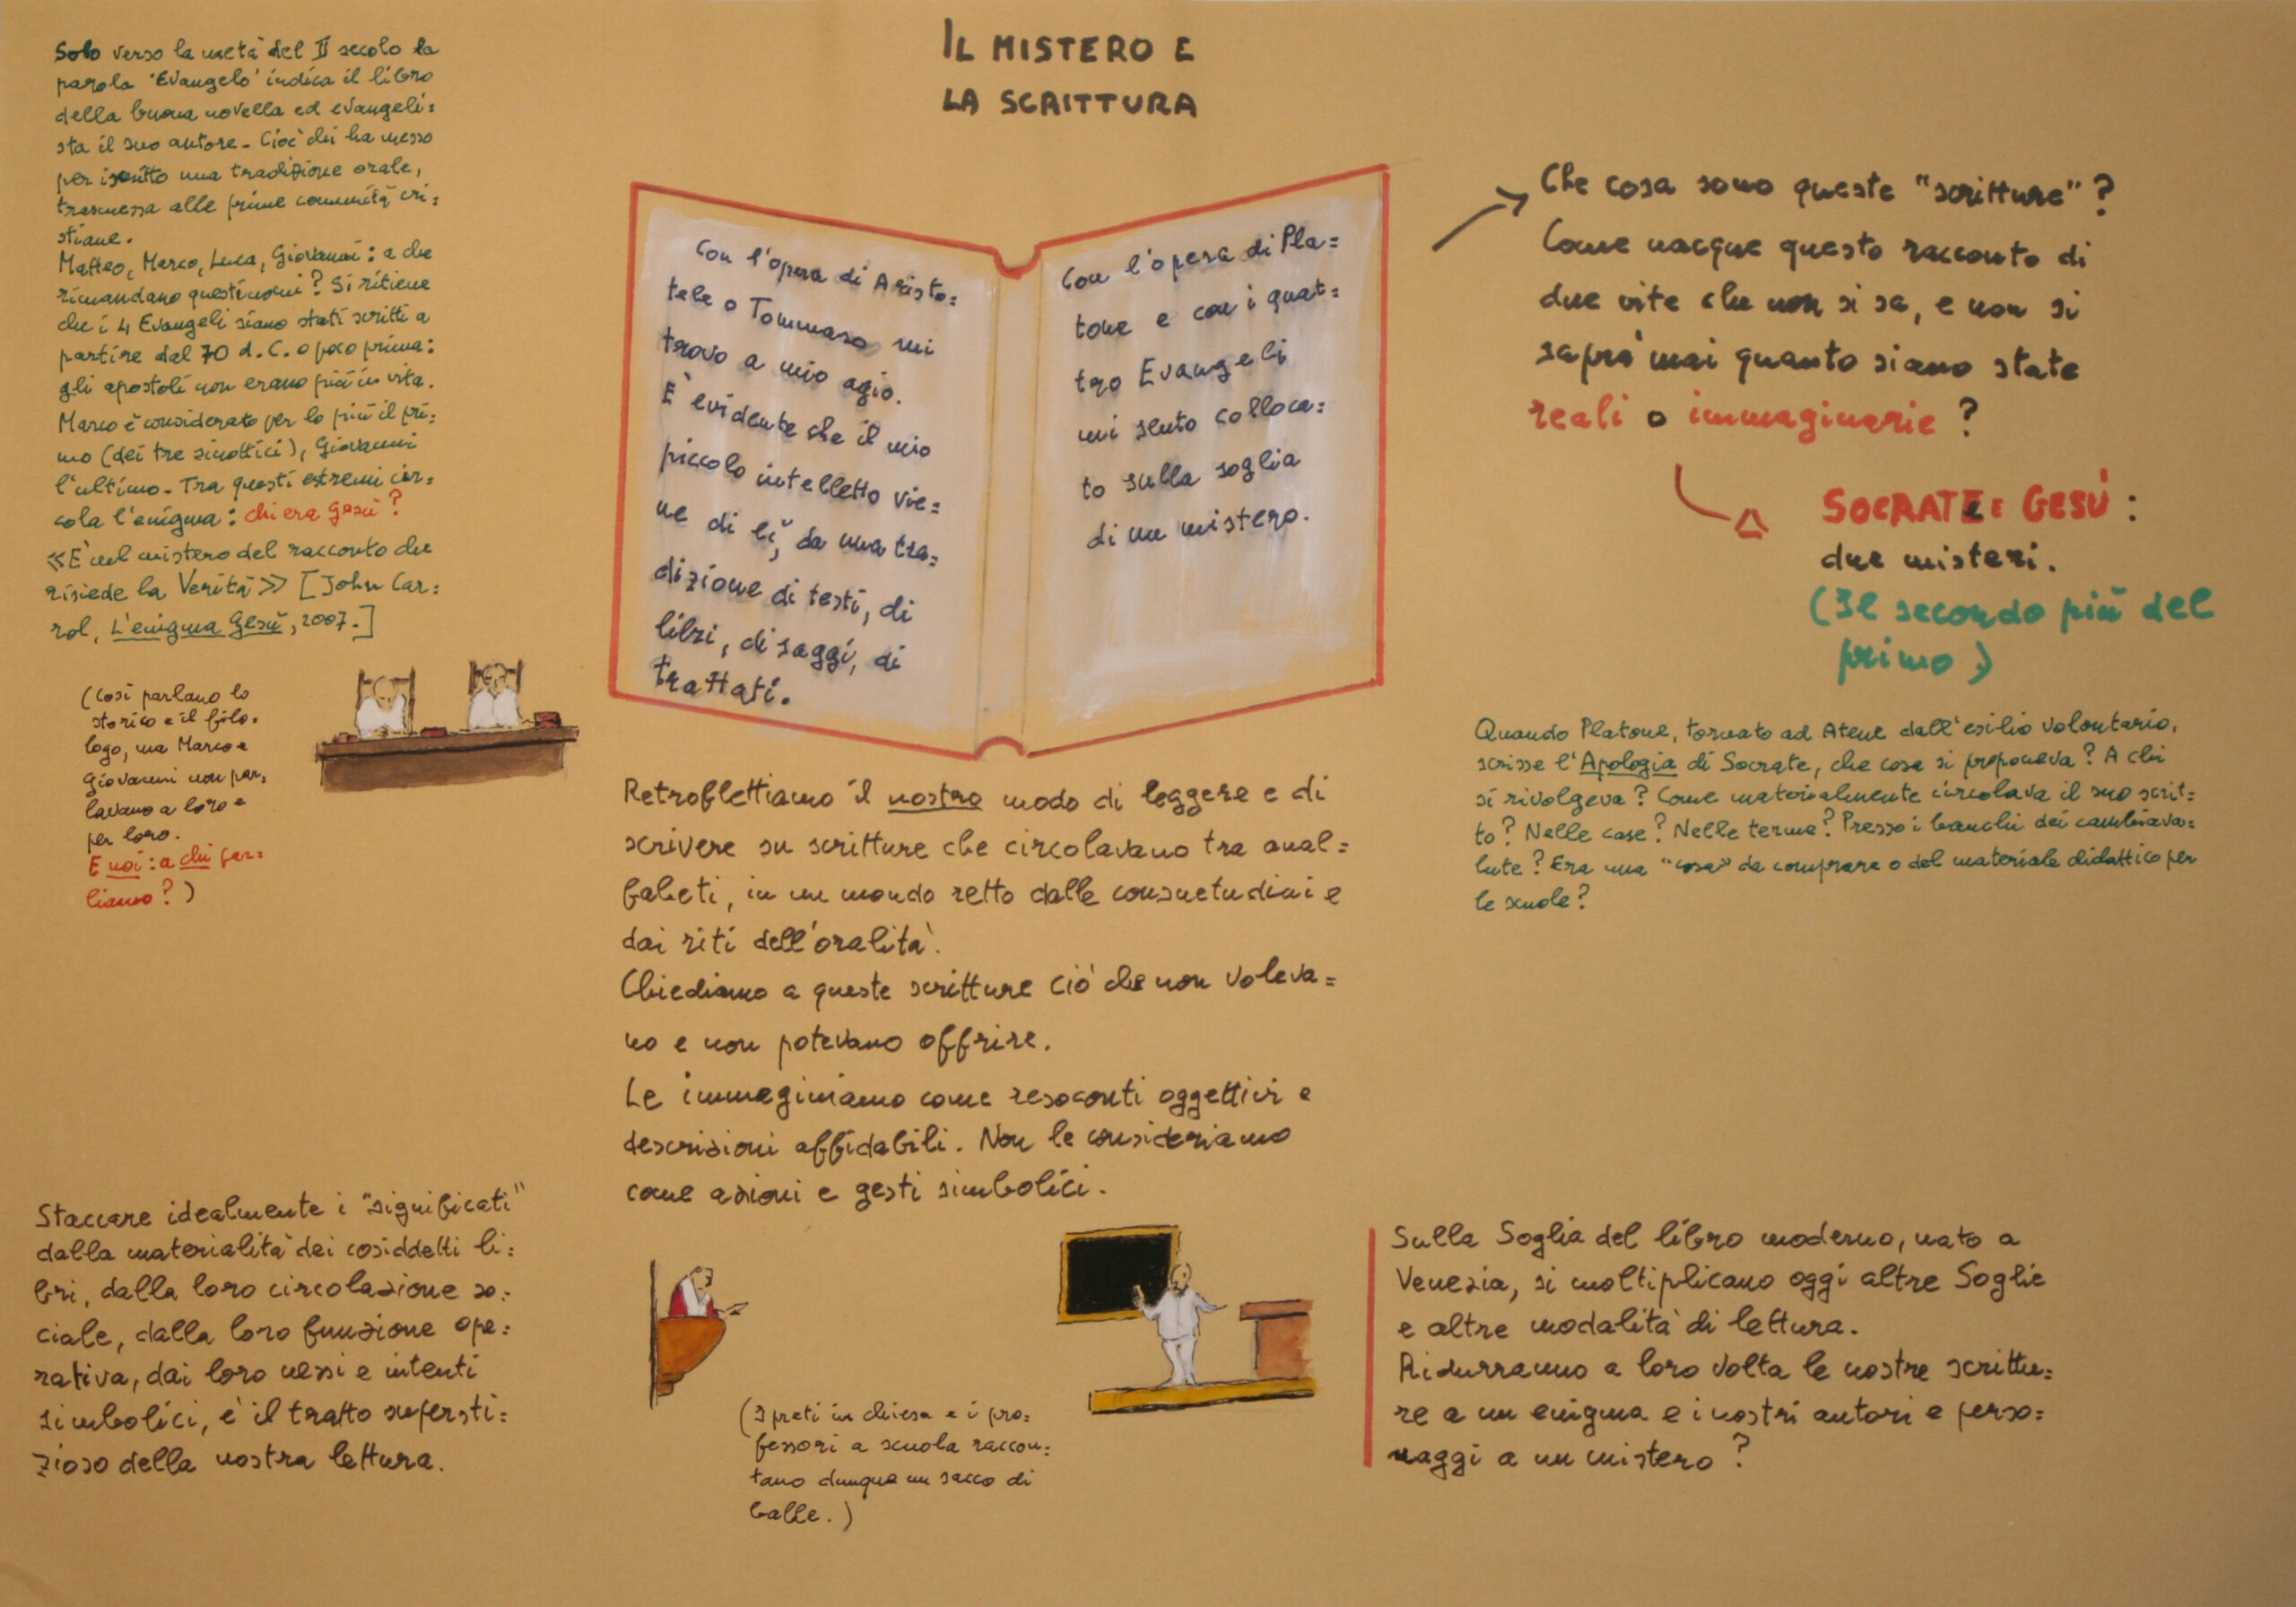 IL MISTERO E
LA SCRITTURA
Solo verso la metà del II secolo la
parola 'Evangelo' indica il libro
della buona novella ed evangeli=
sta il suo autore. Cioè chi ha messo
per iscritto una tradizione orale,
trasmessa alle prime comunità cri=
stiane.
Matteo, Marco, Luca, Giovanni: a che
rimandano questi nomi? Si ritiene
che i 4 Evangeli siano stati scritti a
partire dal 70 d.C. o poco prima:
gli apostoli non erano più in vita.
Marco è considerato per lo più il pri=
mo (dei tre sinottici), Giovanni
l'ultimo. Tra questi estremi cir=
cola l'enigma: chi era Gesù?
«È nel mistero del racconto che
risiede la Verità» [John Car=
rol, L'enigma Gesù, 2007.]
(Così parlano lo
storico e il filo=
logo, ma Marco e
Giovanni non par=
lavano a loro e
per loro.
E noi: a chi par=
liamo?)
Con l'opera di Aristo=
tele o Tommaso mi
trovo a mio agio.
È evidente che il mio
piccolo intelletto vie=
ne di lì, da una tra=
dizione di testi, di
libri, di saggi, di
trattati.
Con l'opera di Pla=
tone e con i quat=
tro Evangeli
mi sento colloca=
to sulla soglia
di un mistero.
Che cosa sono queste "scritture"?
Come nacque questo racconto di
due vite che non si sa, e non si
saprà mai quanto siano state
reali o immaginarie?
SOCRATE E GESÙ:
due misteri.
(Il secondo più del
primo)
Quando Platone, tornato ad Atene dall'esilio volontario,
scrisse l'Apologia di Socrate, che cosa si proponeva? A chi
si rivolgeva? Come materialmente circolava il suo scrit=
to? Nelle case? Nelle terme? Presso i banchi dei cambiava=
lute? Era una "cosa" da comprare o del materiale didattico per
le scuole?
Retroflettiamo il nostro modo di leggere e di
scrivere su scritture che circolavano tra anal=
fabeti, in un mondo retto dalle consuetudini e
dai riti dell'oralità.
Chiediamo a queste scritture ciò che non voleva=
no e non potevano offrire.
Le immaginiamo come resoconti oggettivi e
descrizioni affidabili. Non le consideriamo
come azioni e gesti simbolici.
Staccare idealmente i "significati"
dalla materialità dei cosiddetti li=
bri, dalla loro circolazione so=
ciale, dalla loro funzione ope=
rativa, dai loro nessi e intenti
simbolici, è il tratto supersti=
zioso della nostra lettura.
(I preti in chiesa e i pro=
fessori a scuola raccon=
tano dunque un sacco di
balle.)
Sulla Soglia del libro moderno, nato a
Venezia, si moltiplicano oggi altre Soglie
e altre modalità di lettura.
Ridurranno a loro volta le nostre scrittu=
re a un enigma e i nostri autori e perso=
naggi a un mistero?